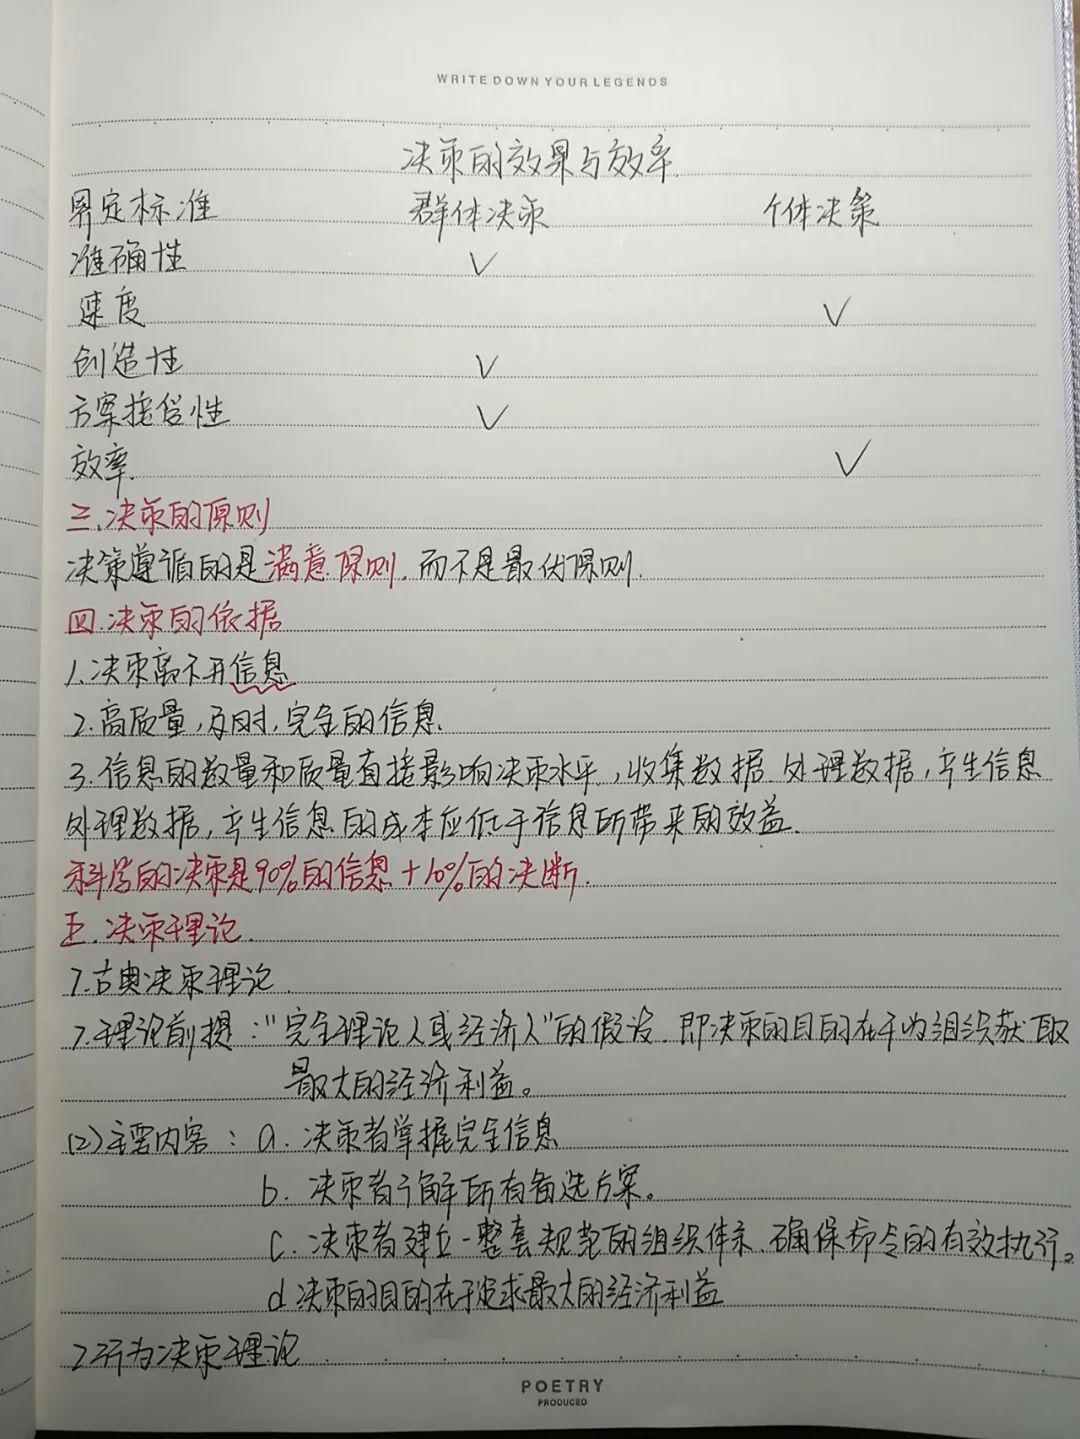 WRITE DOWN YOUR LEGENDS
决策的效果与效率.
界定标准 群体决策 个体决策
准确性 ✓
速度 ✓
创造性 ✓
方案接受性 ✓
效率. ✓
三.决策的原则
决策遵循的是满意原则.而不是最优原则.
四.决策的依据
1.决策离不开信息
2.高质量,及时,完全的信息.
3.信息的数量和质量直接影响决策水平,收集数据 处理数据,产生信息
处理数据,产生信息的成本应低于信息所带来的效益.
科学的决策是90%的信息+10%的决断.
五.决策理论.
1.古典决策理论.
7.理论前提:"完全理论人或经济人"的假设.即决策的目的在于为组织获取
最大的经济利益。
(2)主要内容:a.决策者掌握完全信息
b.决策者了解所有备选方案。
c.决策者建立一整套规范的组织体系.确保命令的有效执行。
d.决策的目的在于追求最大的经济利益
2.行为决策理论
POETRY
PRODUCED